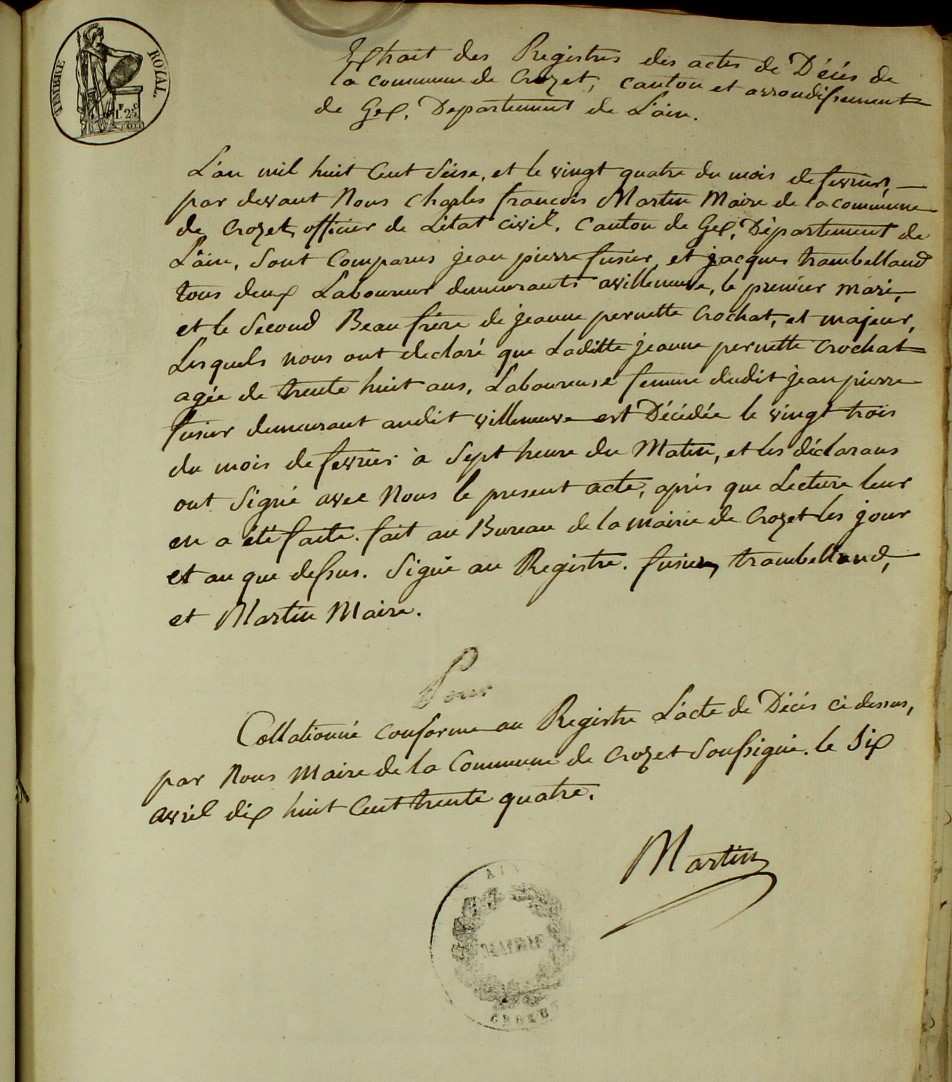 TIMBRE ROYAL.
Extrait des Registres des actes de Décès de
la commune de Crozet, canton et arrondissement
de Gex, Departement de L'ain.
L'an mil huit Cent Seise, et le vingt quatre du mois de fevrier,
par devant Nous Charles françois Martin Maire de la commune
de Crozet, officier de L'état Civil, Canton de Gex, Département de
L'ain, Sont Comparus jean pierre fusier, et jacques trambelland
tous deux Laboureur demeurants a villeneuve, le premier Mari,
et le Second Beau frère de jeanne pernette Crochat, et majeur,
Lesquels nous ont declaré que Laditte jeanne pernette Crochat
agée de trente huit ans, Laboureuse femme dudit jean pierre
fusier demeurant audit villeneuve est Décédée le vingt trois
du mois de fevrier à Sept heure du Matin, et les déclarans
ont Signé avec Nous le present acte, après que Lecture leur
en a été faite. fait au Bureau de la mairie de Crozet les jour
et an que dessus. Signé au Registre. fusier, trambelland,
et Martin Maire.
Pour
Collationné conforme au Registre L'acte de Décès ci dessus,
par Nous Maire de la Commune de Crozet Soussigné. le Six
avril dix huit Cent trente quatre.
Martin
AIN
MAIRIE
CROZET